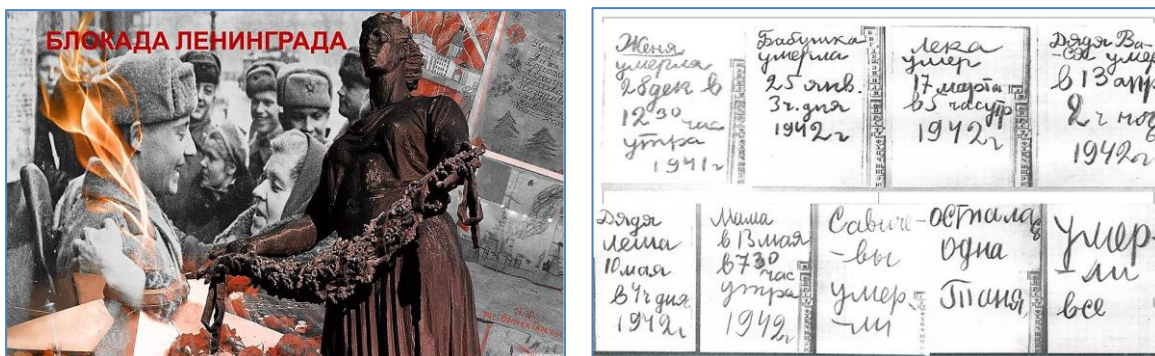 БЛОКАДА ЛЕНИНГРАДА
Женя
умерла
28 дек в
12 30 час
утра
1941 г
Бабушка
умерла
25 янв.
3 ч. дня
1942 г
Лека
умер
17 марта
в 5 час утр
1942 г
Дядя Ва-
-ся умер
в 13 апр
2 ч ноч
1942 г
Дядя
Леша
10 мая
в 4 ч дня
1942 г
Мама
в 13 мая
в 7 30 час
утра
1942 г
Савиче-
-вы
умер-
-ли
осталась
одна
Таня
Умер-
-ли
все